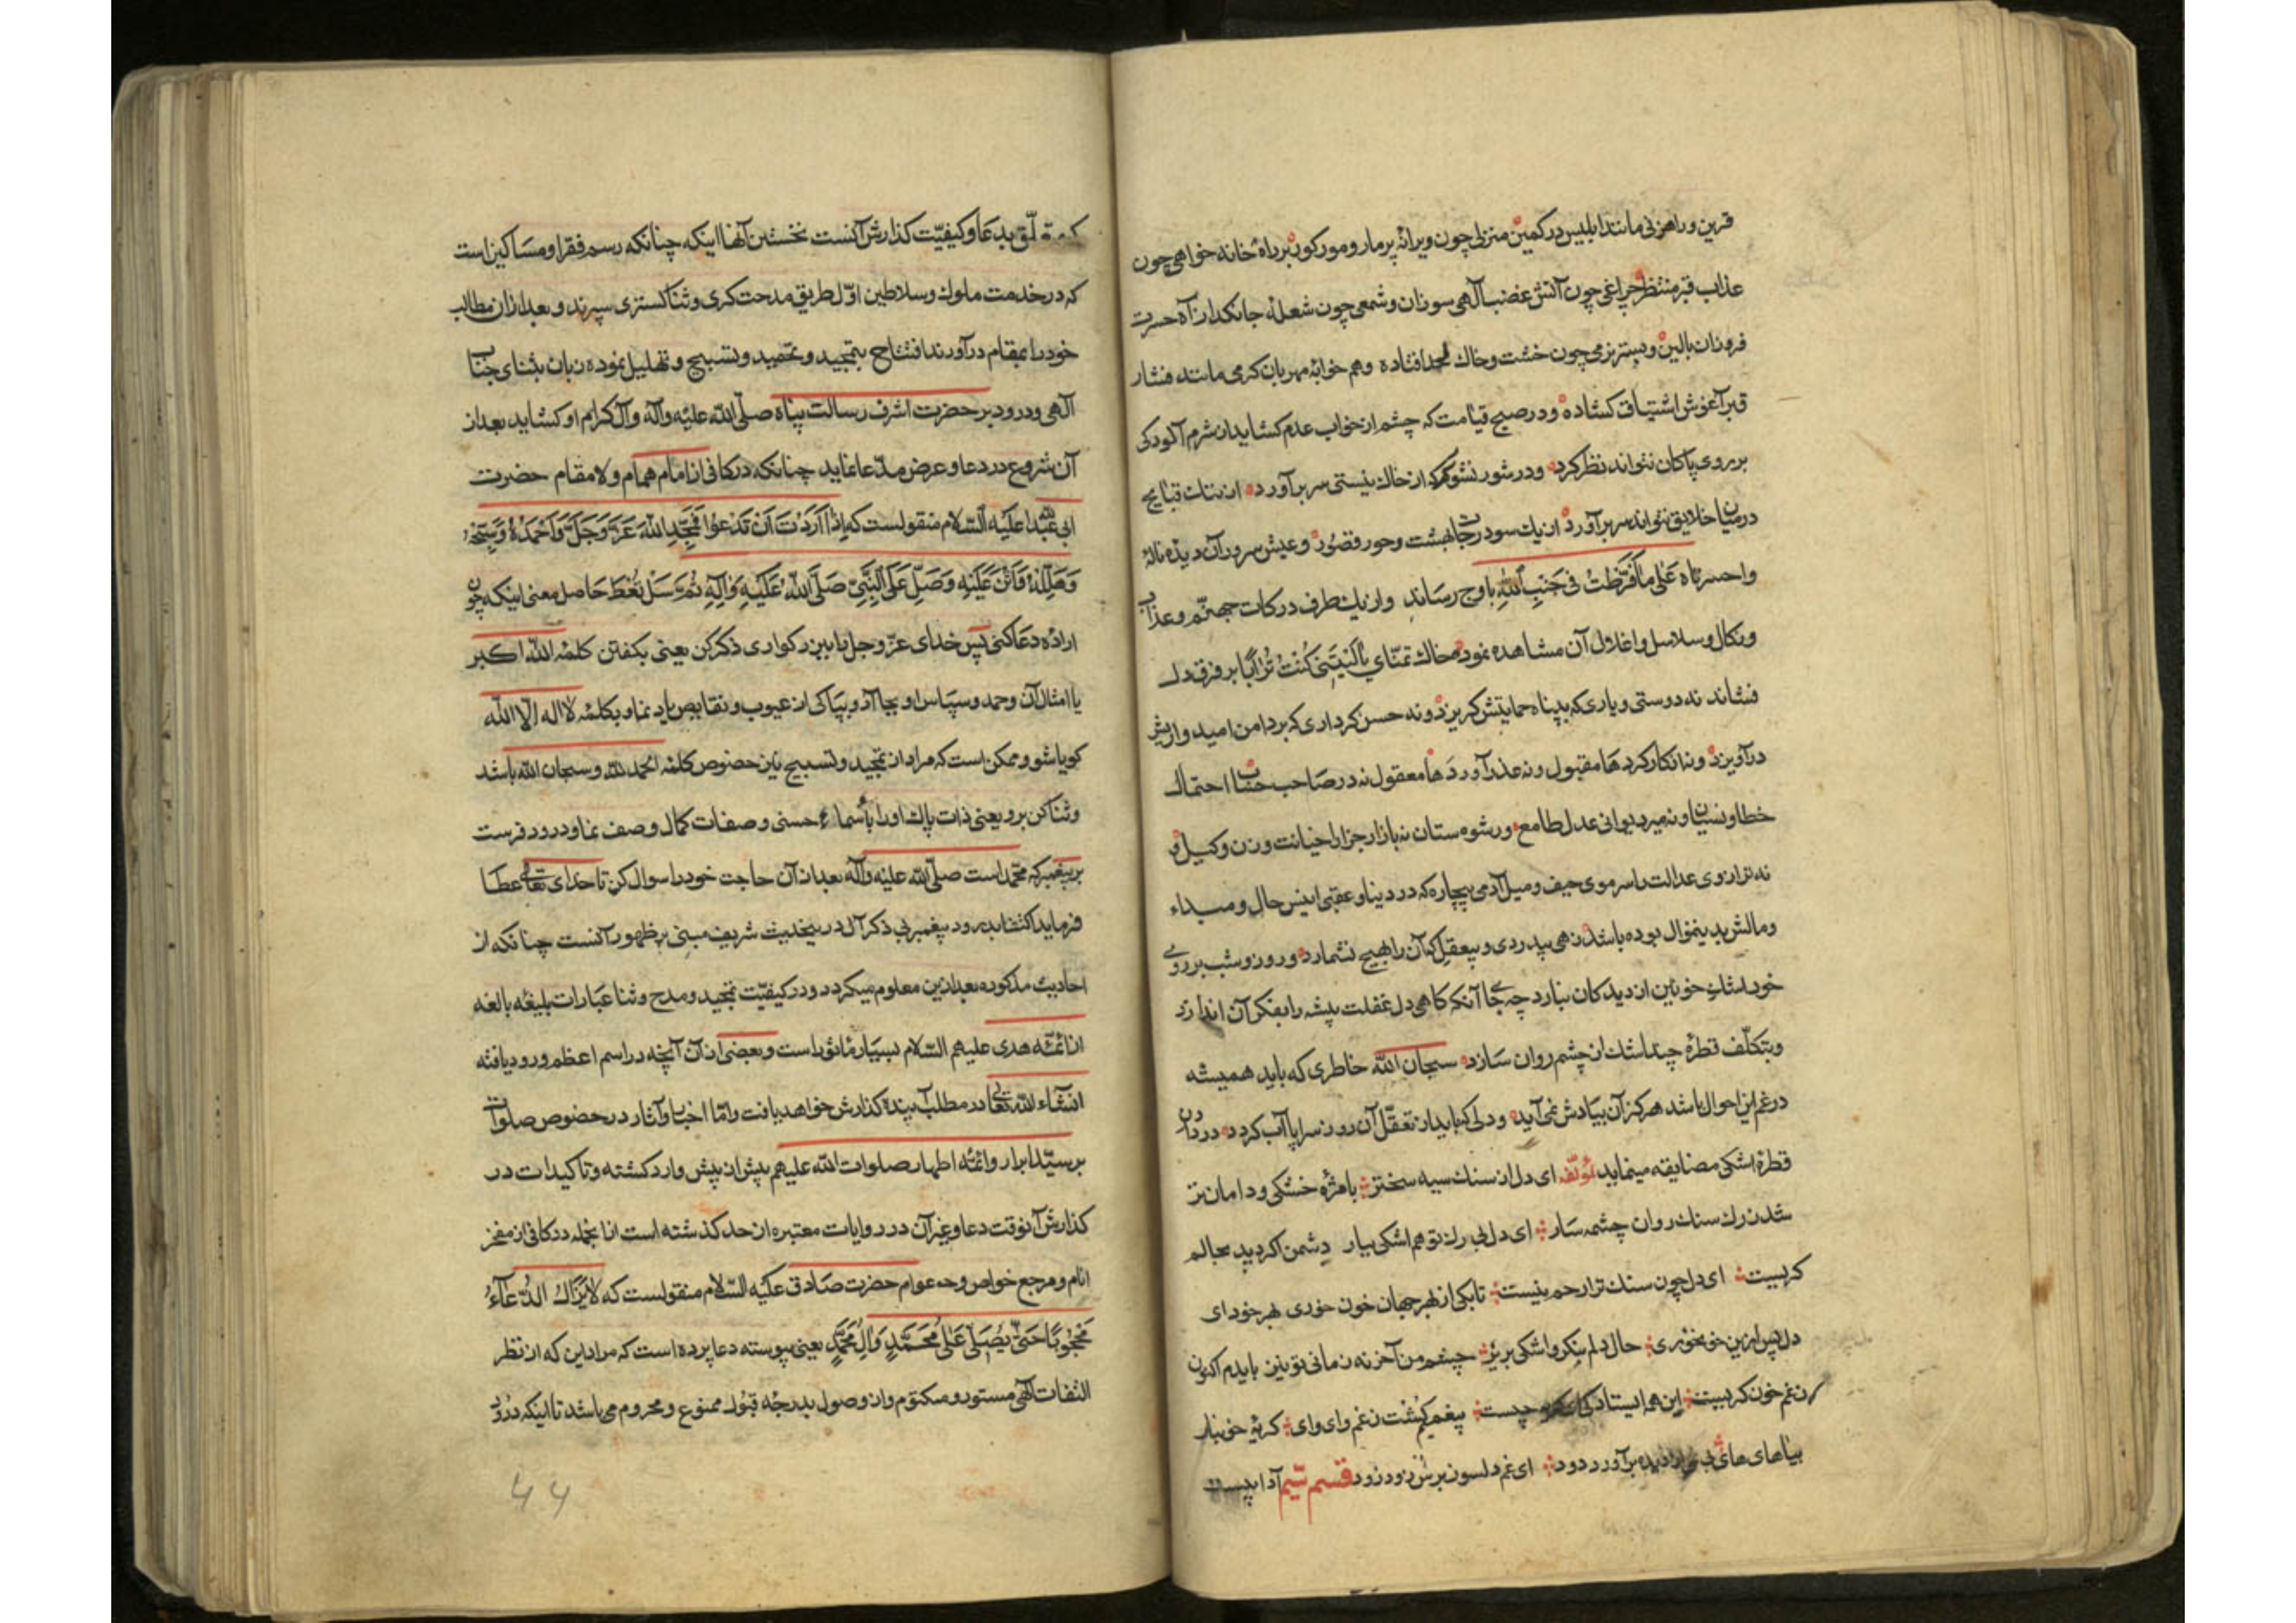 قرین و راهزنی مانند ابلیس در کمین منزلی چون ویرانه پر مار و مور کور بر راه خانه خواهی چون
عذاب قبر منتظر چراغی چون آتش غضب الهی سوزان و شمعی چون شعله جانکداز آه حسرت
فروزان بالین و بستر نرمی چون خشت و خاک لحد افتاده و هم خوابه مهربان کرمی مانند فشار
قبر آغوش اشتیاق کشاده و در صبح قیامت که چشم از خواب عدم کشاید از شرم آلودکی
بر روی پاکان نتواند نظر کرد و در شور نشور که از خاک نیستی سر برآورد از قبایح
در میان خلایق نتواند سر برآورد از یک سو درجات بهشت و حور و قصور و عیش سرور آن دیده ناله
واحسرتاه عَلٰی مٰا فَرَّطْتُ فی جَنْبِ اللّٰهِ باوج رساند و از یک طرف درکات جهنّم و عذاب
و نکال و سلاسل و اغلال آن مشاهده نموده خاک تمنّای یٰا لَیْتَنی کُنْتُ تُرٰابًا بر فرق دل
فشاند نه دوستی و یاری که بپناه حمایتش کریزد و نه حسن کرداری که بر دامن امیدواریش
درآویزد و نه انکار کردها مقبول و نه عذر آوردها معقول نه در صاحب حساب احتمال
خطا و نسیان و نه میر دیوانی عدل طامع و رشوه ستان نه بازار جزا را خیانت وزن و کیل و
نه ترازوی عدالت را سر موی حیف و میل آدمی بیچاره که در دنیا و عقبی اینس حال و مبداء
و مالش بدینمنوال بوده باشد زهی بیدردی و بیعقلی که آن را بهیچ نشمارد و روز و شب بر روی
خود اشک خونین از دیدکان نبارد چه جای آنکه کاهی دل غفلت پیشه را بفکر آن اندازد
و بتکلّف قطره چند اشک از چشم روان سازد سبحان اللّه خاطری که باید همیشه
در غم این احوال باشد هرکز آن بیادش نمی آید و دلی که باید از تعقّل آن روز سراپا آب کردد در دادن
قطره اشکی مضایقه مینماید لمؤلّفه ای دل از سنک سیه سختتر با مژه خشکی و دامان تر
شد ز رک سنک روان چشمه سار ای دل بی رک تو هم اشکی ببار دشمن اکر دید بحالم
کریست ای دل چون سنک ترا رحم نیست تا بکی از بهر جهان خون خوری بهر خود ای
دل پس ازین خون خوری حال دلم بنکر و اشکی بریز چشم من آخر نه زمانی تو نیز بایدم اکنون
ز غم خون کریست این همه استادکی چیست بیغمیم کشت ز غم وای وای کریه خونبار
بیا های های دیده برآورد دود ای غم دلسوز برس زود زود قسم سیّم آدابیست
که تعلّق بدعا و کیفیّت کذارش آنست نخستین آنها اینکه چنانکه رسم فقرا و مساکین است
که در خدمت ملوک و سلاطین اوّل طریق مدحت کری و ثنا کستری سپرند و بعد از ان مطالب
خود را بمقام درآورند افتتاح بتمجید و تحمید و تسبیح و تهلیل نموده زبان بثنای جناب
الهی و درود بر حضرت اشرف رسالت پناه صلّی اللّه علیه و آله و آل کرام او کشاید بعد از
آن شروع در دعا و عرض مدّعا نماید چنانکه در کافی از امام همام و لا مقام حضرت
ابی عبد اللّه علیه السّلام منقولست که اِذٰا اَرَدْتَ اَنْ تَدْعُوا فَمَجِّدِ اللّٰهَ عَزَّ وَ جَلَّ وَ احْمَدْهُ وَ سَبِّحْهُ
وَ هَلِّلْهُ وَ اَثْنِ عَلَیْهِ وَ صَلِّ عَلَی النَّبِیِّ صَلَّی اللّٰهُ عَلَیْهِ وَ اٰلِهِ ثُمَّ سَلْ تُعْطَ حاصل معنی اینکه چون
اراده دعا کنی پس خدای عزّ و جل را ببزرکواری ذکر کن یعنی بکفتن کلمه اللّه اکبر
یا امثال آن و حمد و سپاس او بجا آر و بپاکی از عیوب و نقایص یاد نما و بکلمه لا اله الّا اللّه
کویا شو و ممکن است که مراد از تمجید و تسبیح بین خصوص کلمه الحمد للّه و سبحان اللّه باشد
و ثنا کن برو یعنی ذات پاک او را بأسماء حسنی و صفات کمال وصف نما و درود فرست
بر پیغمبر که محمّد است صلّی اللّه علیه و آله بعد از آن حاجت خود را سوال کن تا خدای تعالی عطا
فرماید اکتفا بدرود پیغمبر بی ذکر آل در ینحدیث شریف مبنی بر ظهور آنست چنانکه از
احادیث مذکوره بعد ازین معلوم میکردد و در کیفیّت تمجید و مدح و ثنا عبارات بلیغه بالغه
از ائمّه هدی علیهم السّلام بسیار ماثور است و بعضی از آن آنچه در اسم اعظم ورود یافته
انشاء اللّه تعالی در مطلب آینده کذارش خواهد یافت و امّا اخبار و آثار در خصوص صلوات
بر سیّد ابرار و ائمّه اطهار صلوات اللّه علیهم بیش از پیش وارد کشته و تاکیدات در
کذارش آن وقت دعا و غیر آن در روایات معتبره از حد کذشته است از انجمله در کافی از مفخر
انام و مرجع خواص و عوام حضرت صادق علیه السّلام منقولست که لٰا یَزٰالُ الدُّعٰآءُ
مَحْجُوبًا حَتّٰی یُصَلّٰی عَلٰی مُحَمَّدٍ وَ اٰلِ مُحَمَّدٍ یعنی پیوسته دعا پرده است که مراد این که از نظر
التفات الهی مستور و مکتوم و از وصول بدرجه قبول ممنوع و محروم می باشد تا اینکه درود
۴۴